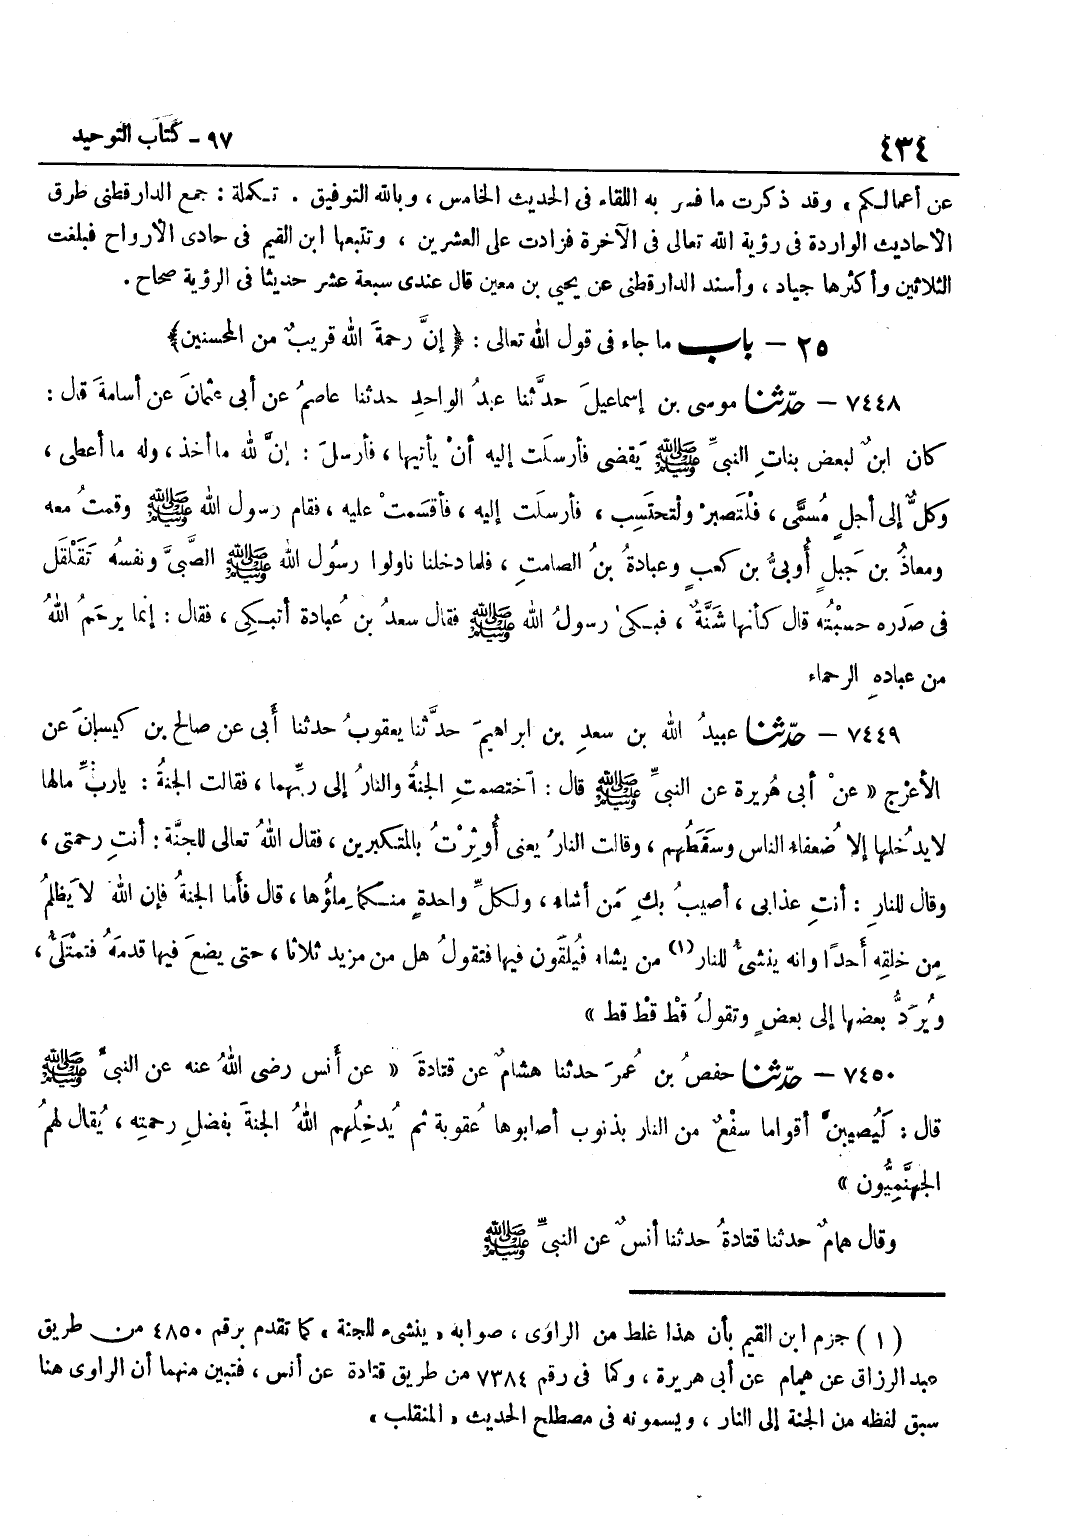 ٤٣٤
٩٧ - كتاب التوحيد
عن أعمالكم ، وقد ذكرت ما فسر به اللقاء فى الحديث الخامس ، وبالله التوفيق . تكملة : جمع الدارقطنى طرق
الأحاديث الواردة فى رؤية الله تعالى فى الآخرة فزادت على العشرين ، وتتبعها ابن القيم فى حادى الأرواح فبلغت
الثلاثين وأكثرها جياد ، وأسند الدارقطنى عن يحيى بن معين قال عندى سبعة عشر حديثا فى الرؤية صحاح .
٢٥ - باب ما جاء فى قول الله تعالى : ﴿ إنَّ رحمةَ الله قريبٌ من المحسنين﴾
٧٤٤٨ - حدّثنا موسى بن إسماعيلَ حدَّثنا عبدُ الواحدِ حدثنا عاصمٌ عن أبى عثمانَ عن أسامةَ قال :
كان ابنٌ لبعض بناتِ النبيِّ ﷺ يَقضى فأرسلَت إليه أنْ يأتيها ، فأرسلَ : إنَّ لله ما أخذ ، وله ما أعطى ،
وكلٌّ إلى أجلٍ مُسمًّى ، فلْتَصبرْ ولْتحتَسِب ، فأرسلَت إليه ، فأقسَمتْ عليه ، فقام رسول الله ﷺ وقمتُ معه
ومعاذُ بن جَبلٍ أُوبىُّ بن كعبٍ وعبادةُ بنُ الصامتِ ، فلما دخلنا ناولوا رسُول الله ﷺ الصَّبىَّ ونفسُه تَقَلْقَل
فى صَدَره حسبْتُه قال كأنها شَنَّةٌ ، فبكىٰ رسولُ الله ﷺ فقال سعدُ بن عُبادة أتبكِى ، فقال : إنما يرحَمُ اللهُ
من عبادهِ الرحماء
٧٤٤٩ - حدّثنا عبيدُ الله بن سعدِ بن ابراهيمَ حدَّثنا يعقوبُ حدثنا أَبى عن صالح بن كيسانَ عن
الأعرْج « عنْ أبى هُريرة عن النبيِّ ﷺ قال : اختصمتِ الجنةُ والنارُ إلى ربِّهما ، فقالت الجنةُ : ياربِّ مالها
لايدخُلها إلا ضُعفاء الناس وسَقَطُهم ، وقالت النارُ يعنى أُوثِرْتُ بالمتكبرين ، فقال اللهُ تعالى للجنَّة : أنتِ رحمتى ،
وقال للنارِ : أنتِ عذابى ، أصيبُ بكِ مَن أشاء ، ولكلِّ واحدةٍ منكما مِلؤُها ، قال فأَما الجنةُ فإن اللهَ لا يَظلمُ
مِن خلقِه أَحدًا وانه ينشئُ للنار (١) من يشاء فيُلقَون فيها فتقولُ هل من مزيد ثلاثا ، حتى يضعَ فيها قدمَهُ فتمْتلئُ ،
ويُرَدُّ بعضها إلى بعضٍ وتقولُ قطْ قطْ قط »
٧٤٥٠ - حدّثنا حفصُ بن عُمرَ حدثنا هشامٌ عن قتادةَ « عن أَنس رضى اللهُ عنه عن النبىِّ ﷺ
قال : لَيُصيبنَّ أقواما سفْعٌ من النار بذنوب أصابوها عُقوبة ثم يُدخِلُهم اللهُ الجنةَ بفضلِ رحمتِه ، يُقال لهمُ
الجهنَّمِيُّون »
وقال همامٌ حدثنا قتادةُ حدثنا أنسٌ عن النبىِّ ﷺ
(١) جزم ابن القيم بأن هذا غلط من الراوى ، صوابه « ينشىء للجنة » كما تقدم برقم ٤٨٥٠ من طريق
عبد الرزاق عن همام عن أبى هريرة ، وكما فى رقم ٧٣٨٤ من طريق قتادة عن أنس ، فتبين منهما أن الراوى هنا
سبق لفظه من الجنة إلى النار ، ويسمونه فى مصطلح الحديث « المنقلب »